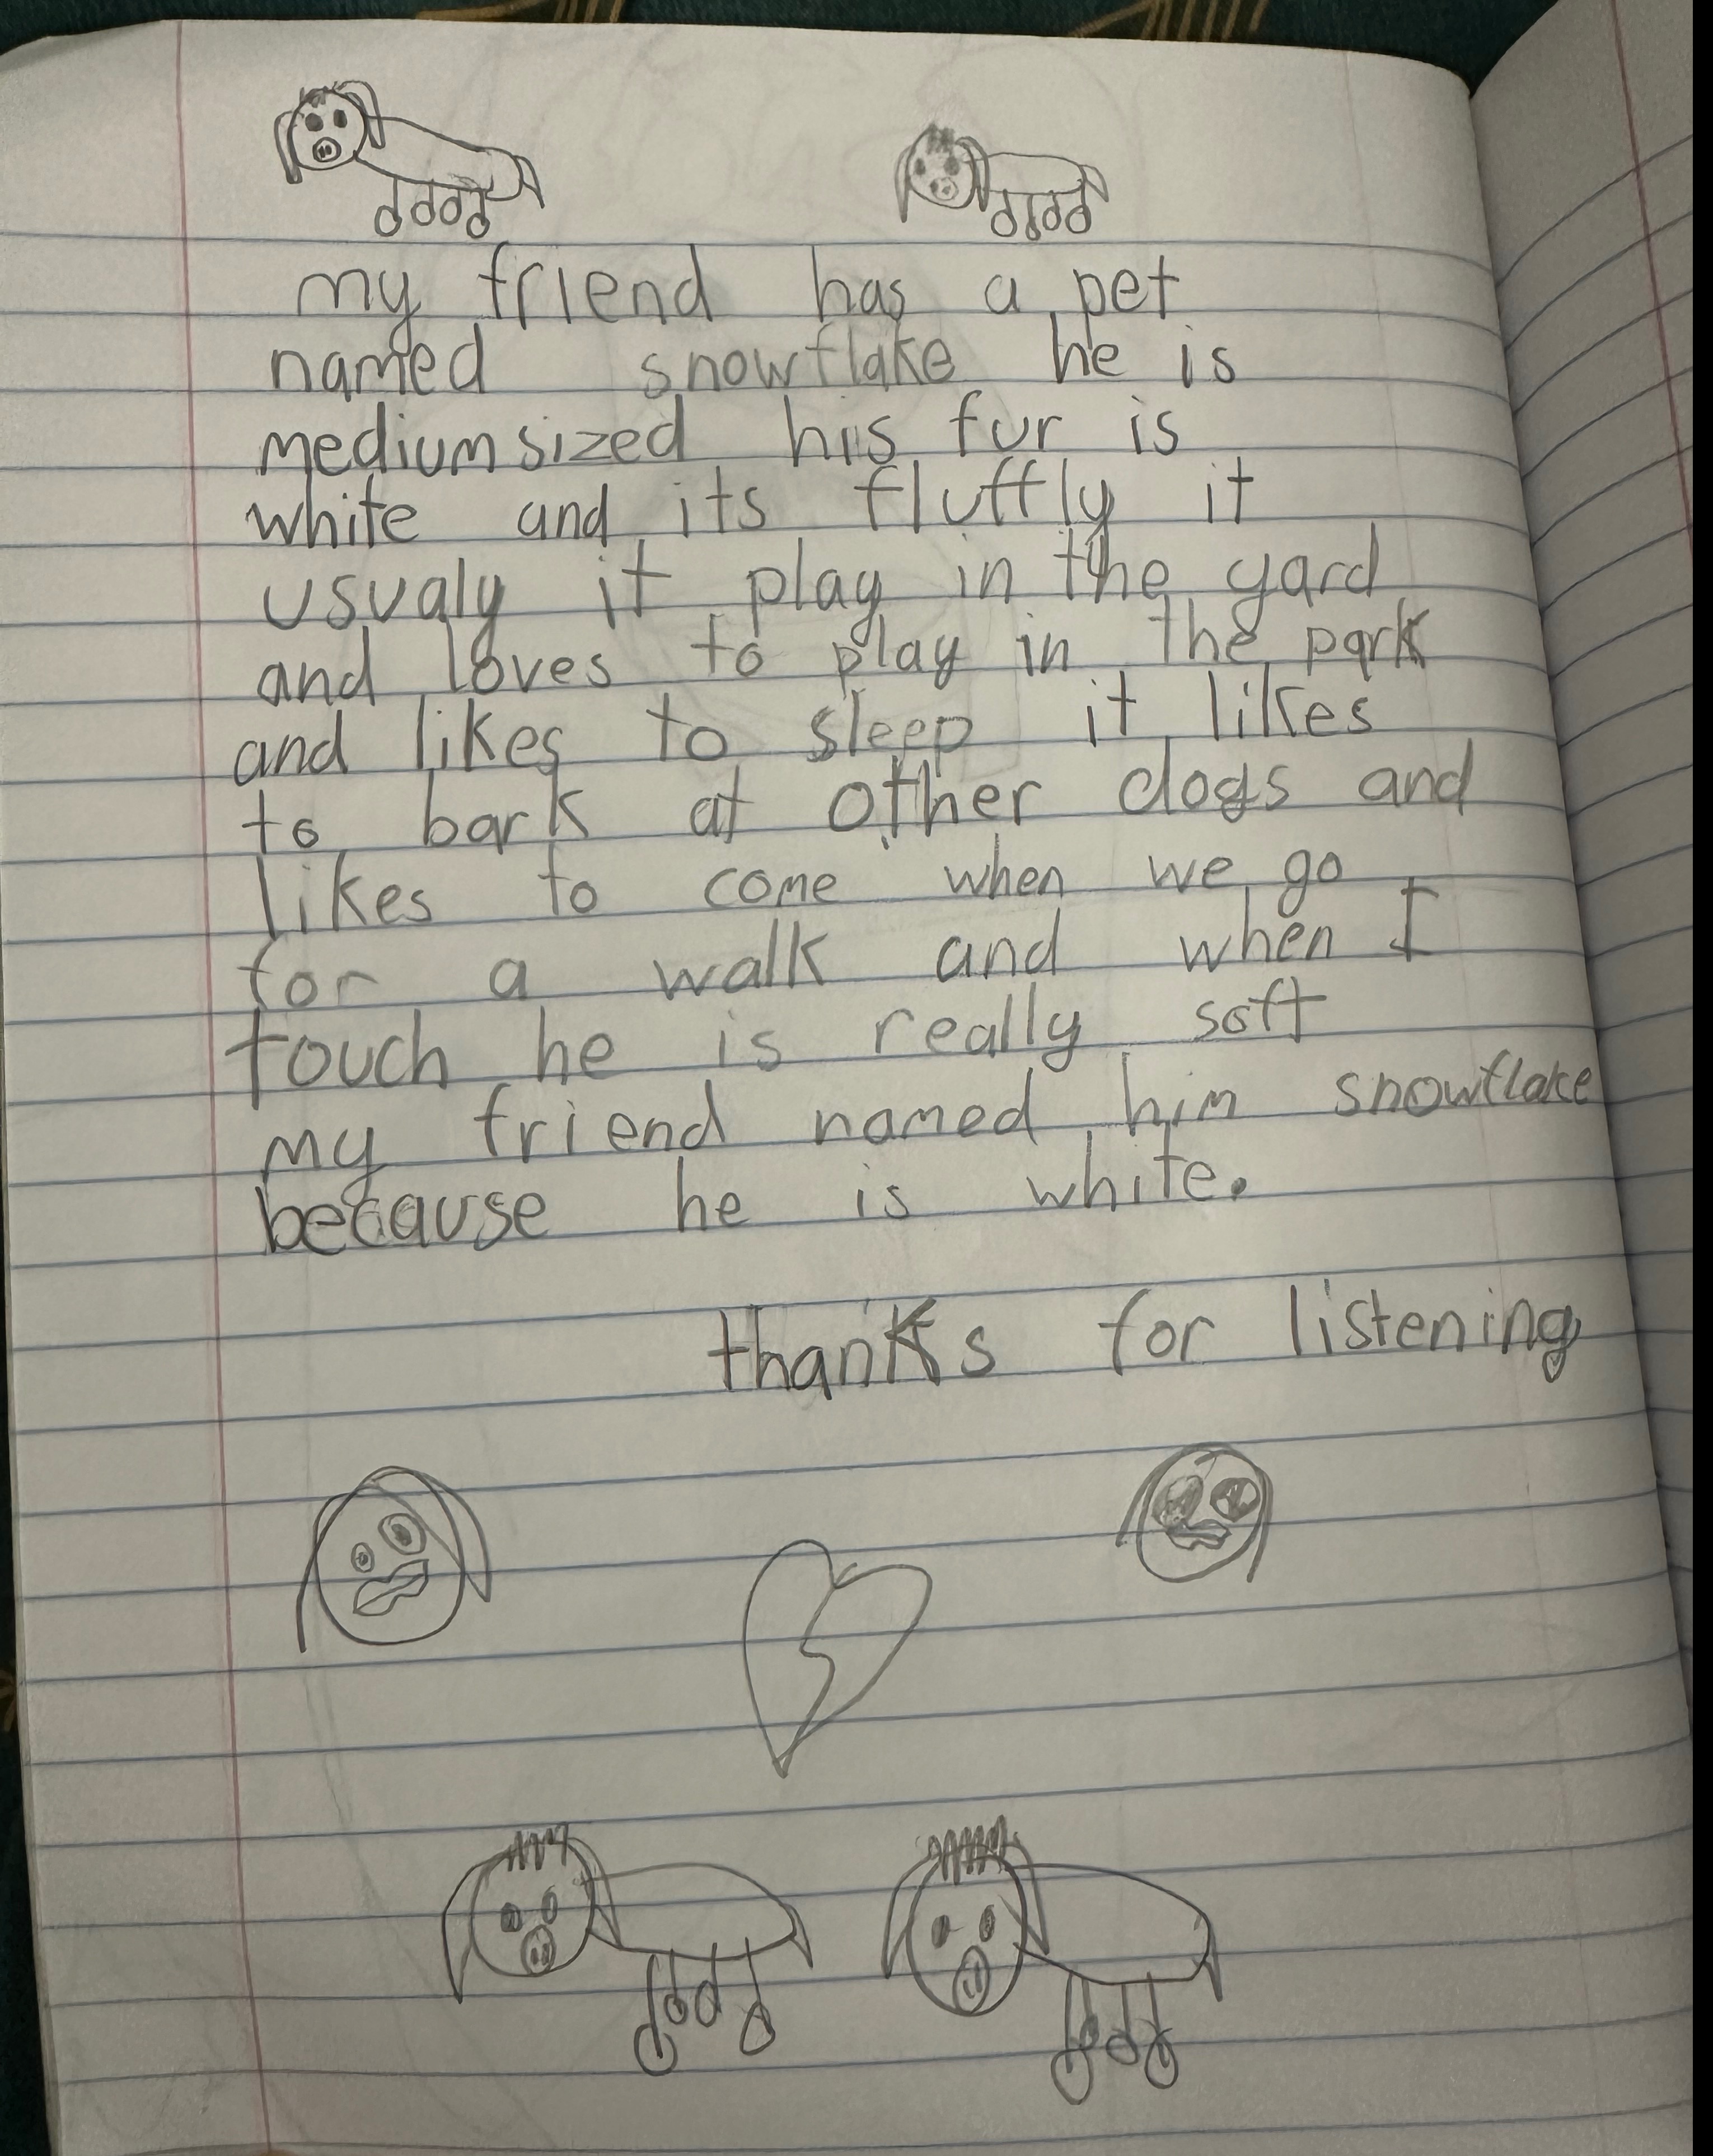 my friend has a pet
named snowflake he is
medium sized his fur is
white and its fluffly it
usualy it play in the yard
and loves to play in the park
and likes to sleep it likes
to bark at other dogs and
likes to come when we go
for a walk and when I
touch he is really soft
my friend named him snowflake
because he is white.
thanks for listening